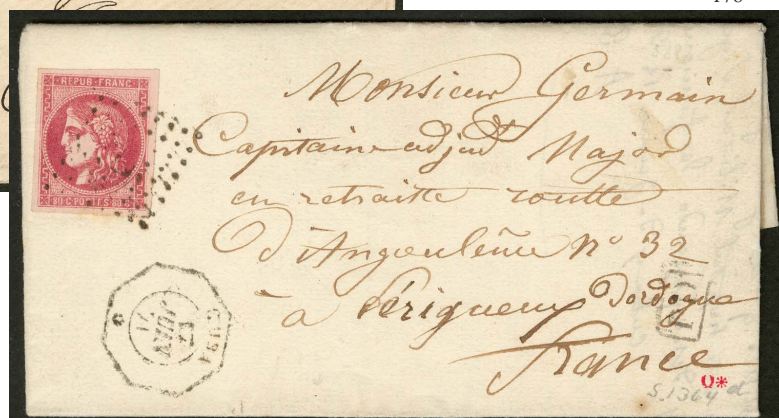 REPUB·FRANC
80·C·POSTES·80·C
Monsieur Germain
Capitaine adjudt Major
en retraitte routte
d'Angoulême N° 32
à Périgueux Dordogne
France
AVRIL
71
PD
S.1364